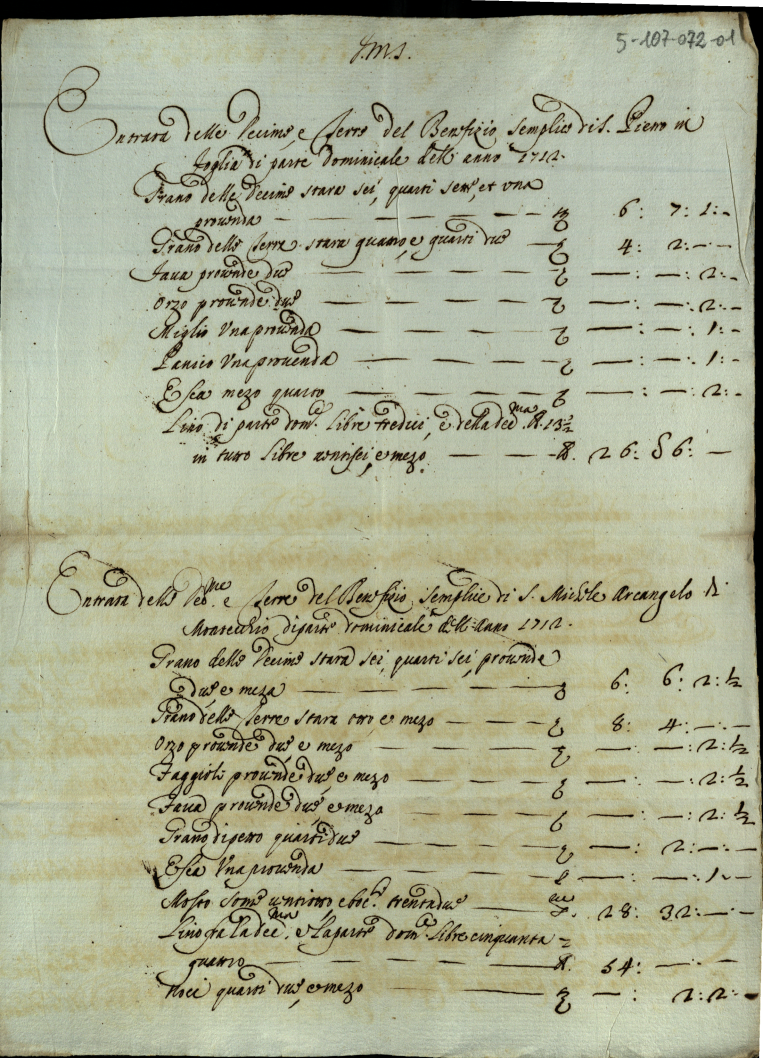 5-107-072-01
J.M.J.
Entrata delle Decime, e Terre del Benefizio Semplice di S. Piero in
Foglia di parte Dominicale dell' anno 1712.
Grano delle Decime stara sei, quarti sette, et una
provenda — 6: 7: 1: -
Grano delle Terre stara quattro, e quarti due — 4: 2: — -
Fava provende due — — : — : 2: -
Orzo provende due — — : — : 2: -
Miglio Una provenda — — : — : 1: -
Panico Una provenda — — : — : 1: -
E Sea mezo quarto — — : — : 2: -
Lino di parte dom.e Libre tredici, e della dec.ma 13½
in tutto Libre ventisei, e mezo. — 26: 6: —
Entrata delle Dec.me e Terre del Benefizio Semplice di S. Michele Arcangelo di
di parte dominicale dell' Anno 1712.
Grano delle Decime stara sei, quarti sei, provende
due, e meza — 6: 6: 2: ½
Grano delle Terre stara otto, e mezo — 8: 4: — -
Orzo provende due, e mezo — — : — : 2: ½
Faggioli provende due, e mezo — — : — : 2: ½
Fava provende due, e meza — — : — : 2: ½
Grano di quarti due — — : 2: — -
E Sea Una provenda — — : — : 1: -
Mosto Some ventiotto, e boc.li trentadue — 28: 32: — -
Lino fra la dec.ma e la parte dom.e Libre cinquanta =
quattro — 54: — -
Noci quarti due, e mezo — — : 2: 2: -